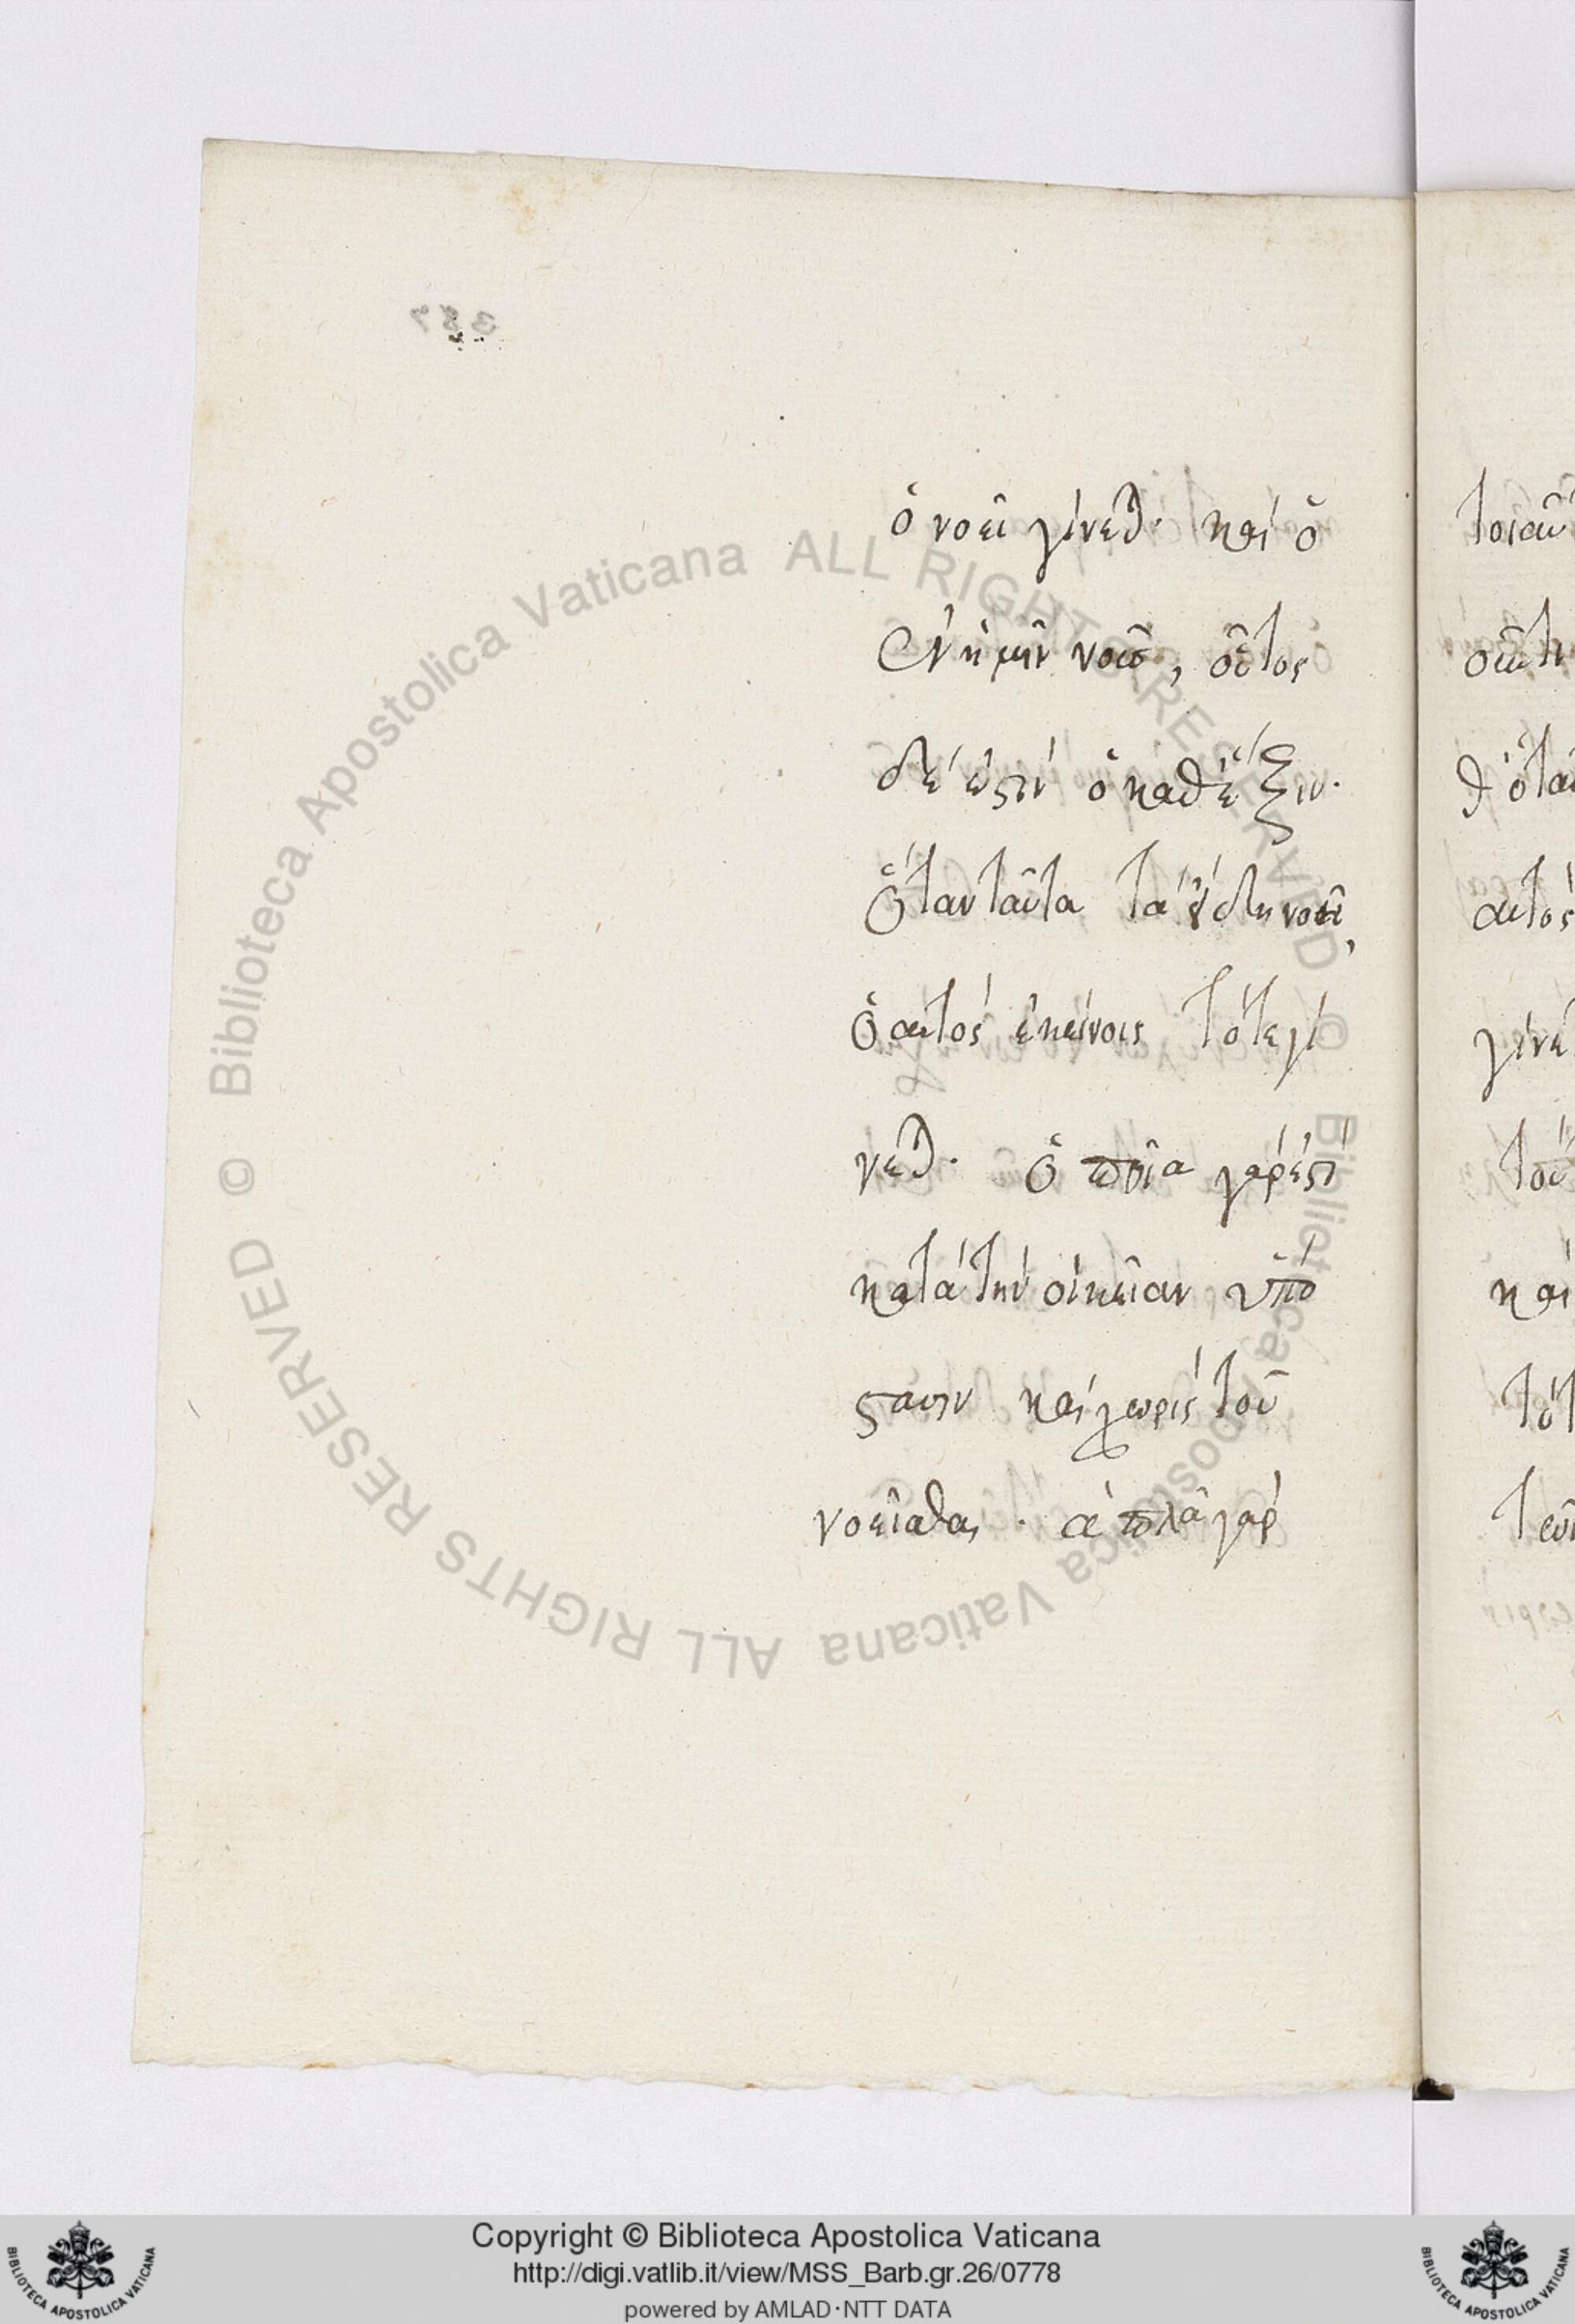 ὃ νοεῖ γίνεται· καὶ ὁ
ἐν ἡμῖν νοῦς, οὗτος
δέ ἐστιν ὁ καθ' ἕξιν·
Ὅταν ταῦτα τὰ εἴδη νοῇ,
ὁ αὐτὸς ἐκείνοις τότε γί
νεται. Ὁποῖα γάρ ἐστι
κατὰ τὴν οἰκείαν ὑπό
στασιν καὶ χωρὶς τοῦ
νοεῖσθαι. ἁπλᾶ γὰρ
τοιαῦ
οὖν τ
θ' ὅτα
αὐτὸς
γίνε
τοῦ
καὶ
Biblioteca Apostolica Vaticana ALL RIGHTS RESERVED ©
Biblioteca Apostolica Vaticana ALL RIGHTS RESERVED ©
BIBLIOTECA APOSTOLICA VATICANA
Copyright © Biblioteca Apostolica Vaticana
http://digi.vatlib.it/view/MSS_Barb.gr.26/0778
powered by AMLAD·NTT DATA
BIBLIOTECA APOSTOLICA VATICANA